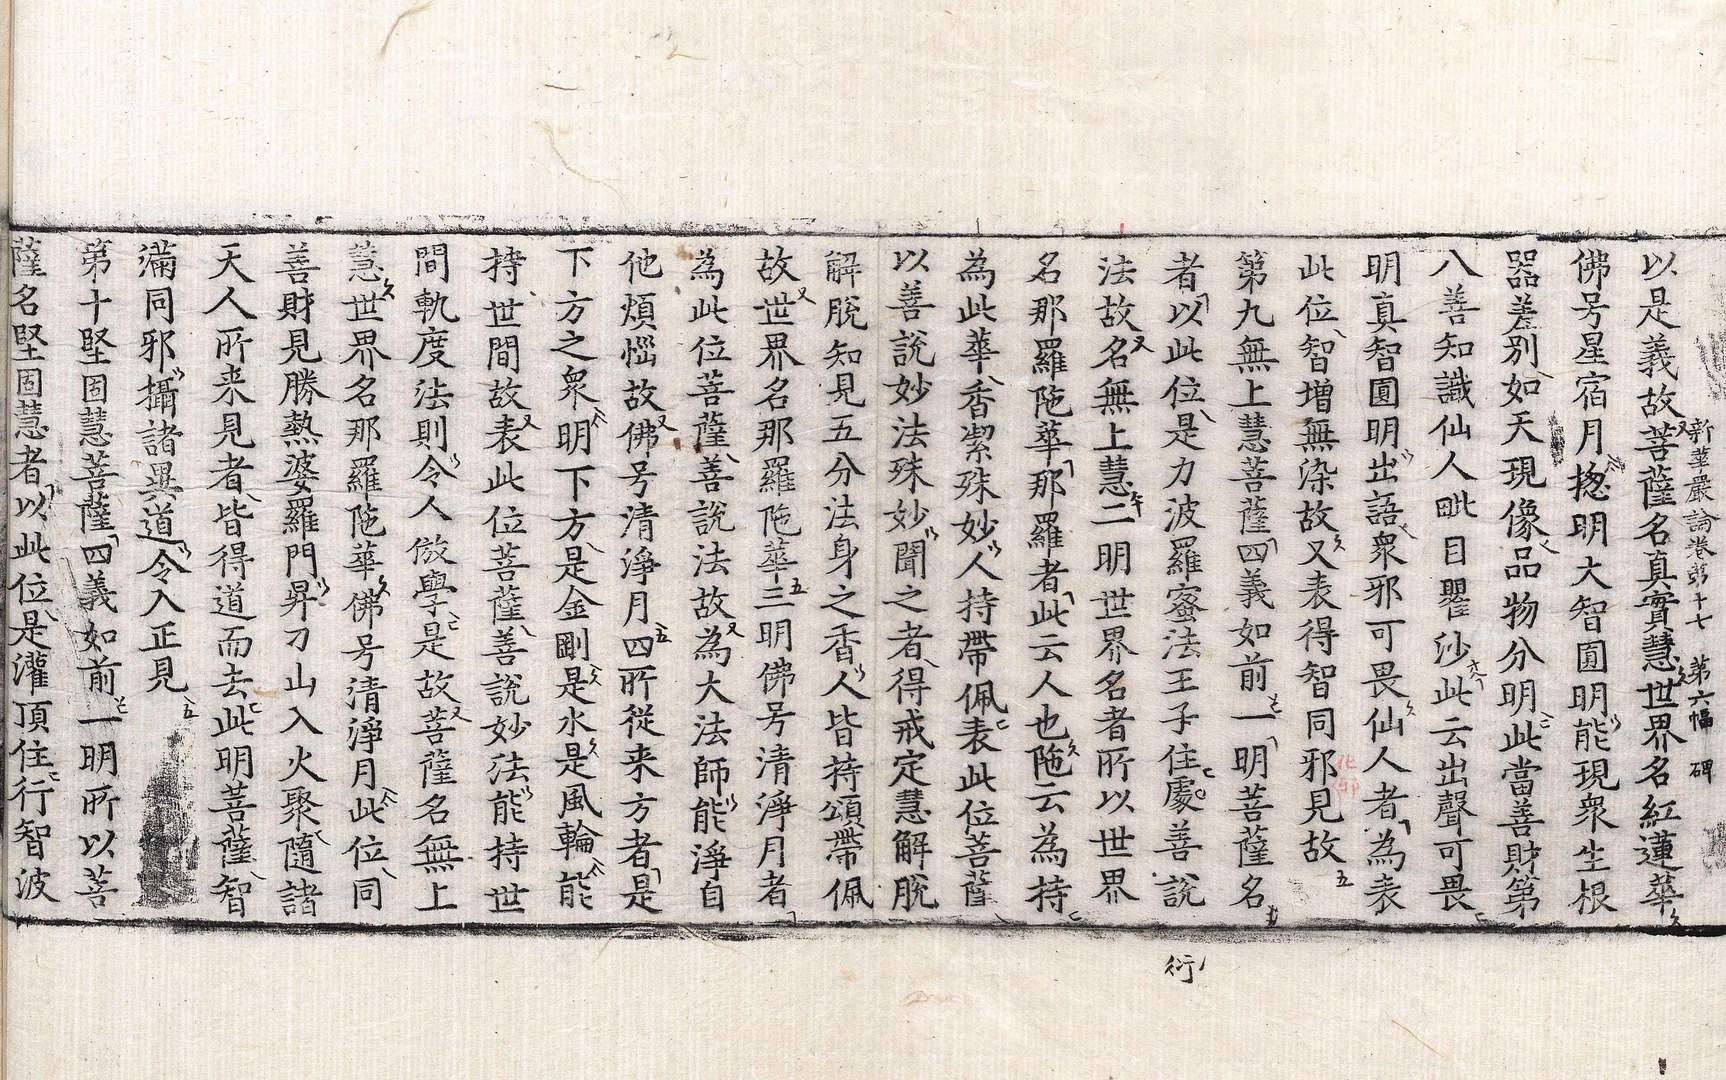 新華嚴論卷第十七 第六幅 碑
以是義故菩薩名真實慧世界名紅蓮華
佛号星宿月揔明大智圎明能現衆生根
器差别如天現像品物分明此當善財第
八善知識仙人毗目瞿沙此云出聲可畏
明真智圓明出語衆邪可畏仙人者為表
此位智增無染故又表得智同邪見故
第九無上慧菩薩四義如前一明菩薩名
者以此位是力波羅蜜法王子住處善說
法故名無上慧二明世界名者所以世界
名那羅陁華那羅者此云人也陁云為持
為此華香潔殊妙人持帶佩表此位菩薩
以善說妙法殊妙聞之者得戒定慧解脫
解脫知見五分法身之香人皆持頌帶佩
故世界名那羅陁華三明佛号清淨月者
為此位菩薩善說法故為大法師能淨自
他煩惱故佛号清淨月四所從来方者是
下方之衆明下方是金剛是水是風輪能
持世間故表此位菩薩善說妙法能持世
間軌度法則令人倣學是故菩薩名無上
慧世界名那羅陁華佛号清淨月此位同
善財見勝熱婆羅門昇刀山入火聚隨諸
天人所来見者皆得道而去此明菩薩智
滿同邪攝諸異道令入正見
第十堅固慧菩薩四義如前一明所以菩
薩名堅固慧者以此位是灌頂住行智波
衍